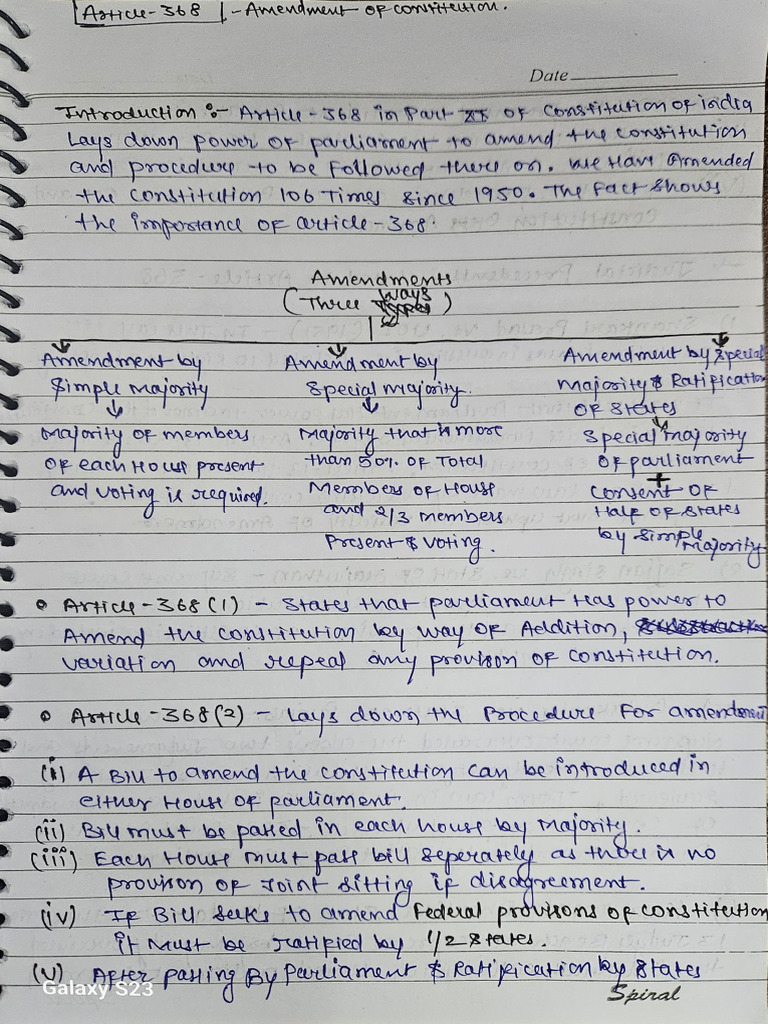 Article-368 - Amendment of constitution.
Date
Introduction :- Article-368 in Part XX of Constitution of india
Lays down power of parliament to amend the constitution
and procedure to be followed there on. We Have Amended
the constitution 106 Times since 1950. The fact shows
the importance of article-368.
Amendments
(Three ways)
Amendment by
Simple Majority
Majority of members
of each House present
and voting is required.
Amendment by
Special Majority.
Majority that is more
than 50% of Total
Members of House
and 2/3 members
Present & voting.
Amendment by special
Majority & Ratification
of states
Special Majority
of parliament
+
Consent of
Half of States
by simple Majority
• Article-368(1) - States that parliament Has power to
Amend the constitution by way of Addition,
variation and repeal any provison of constitution.
• Article-368(2) - Lays down the Procedure for amendment
(i) A Bill to amend the constitution can be introduced in
either House of parliament.
(ii) Bill must be passed in each house by Majority.
(iii) Each House must pass bill seperately as there is no
provison of Joint sitting if disagreement.
(iv) If Bill seeks to amend Federal provisons of constitution
it Must be ratified by 1/2 states.
(v) After passing By Parliament & Ratification by states
Galaxy S23
Spiral